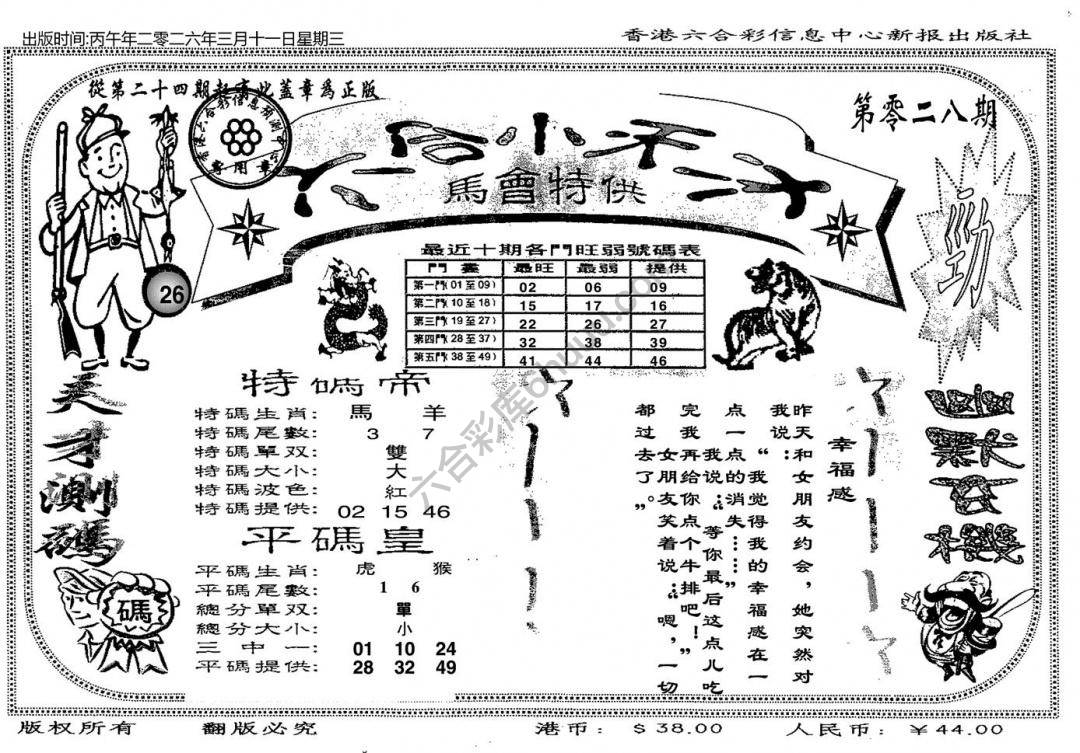 出版时间:丙午年二零二六年三月十一日星期三
香港六合彩信息中心新报出版社
從第二十四期起章此蓋章爲正版
第零二八期
專用章
馬會特供
勁
26
最近十期各門旺弱號碼表
門 最旺 最弱 提供
第一門(01至09) 02 06 09
第二門(10至18) 15 17 16
第三門(19至27) 22 26 27
第四門(28至37) 32 38 39
第五門(38至49) 41 44 46
天才測碼
碼
特碼帝
特碼生肖: 馬 羊
特碼尾數: 3 7
特碼單双: 雙
特碼大小: 大
特碼波色: 紅
特碼提供: 02 15 46
平碼皇
平碼生肖: 虎 猴
平碼尾數: 1 6
總分單双: 單
總分大小: 小
三中一: 01 10 24
平碼提供: 28 32 49
幸福感
昨天和女朋友约会，她突然对
我说：“我觉得我的幸福感在一
点一点的消失……”
我说：“等你最后这点儿吃
完我再给你点个牛排吧！”
女朋友笑着说：“嗯，一切
都过去了。”
六合彩库
版权所有 翻版必究 港币: $38.00 人民币: ¥44.00